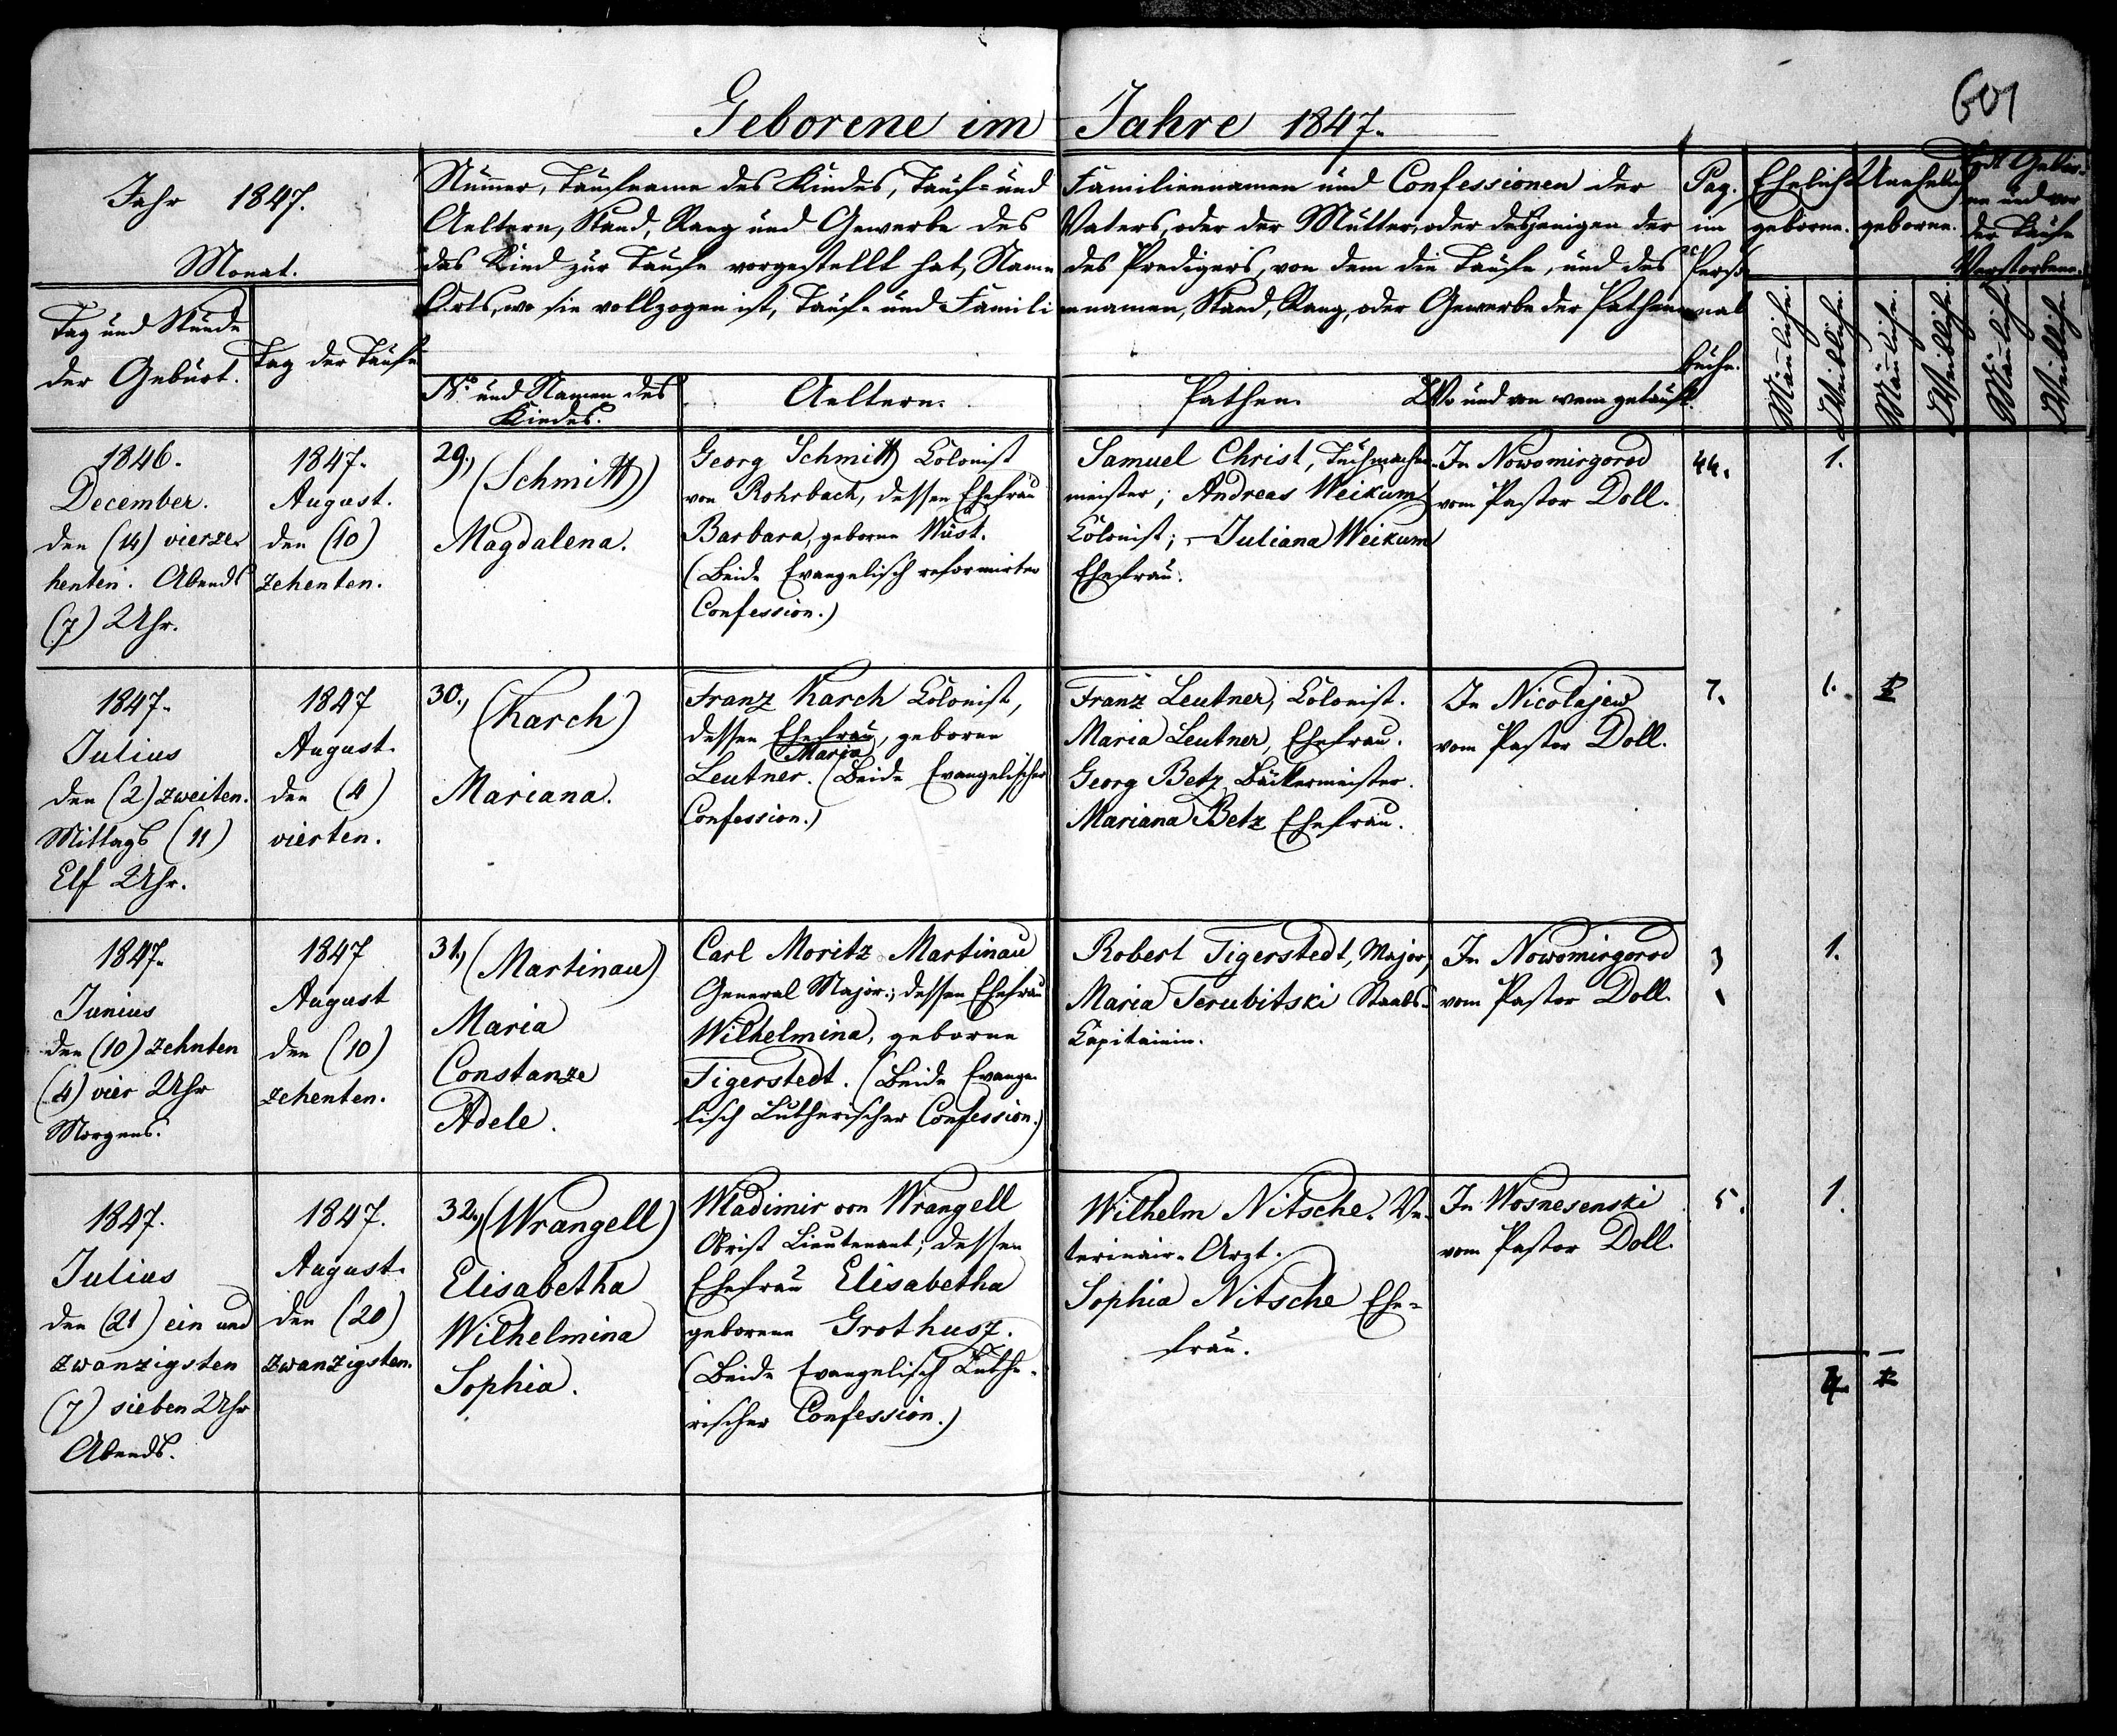 601
Geborene im Jahre 1847.
Jahr 1847.
Monat.
Tag und Stunde
der Geburt.
Tag der Taufe
Num̄er, Taufname des Kindes, Tauf- und Familiennamen und Confessionen der
Aeltern, Stand, Rang und Gewerbe des Vaters, oder der Mutter, oder desjenigen der
das Kind zur Taufe vorgestellt hat, Name des Predigers, von dem die Taufe, und des
Orts, wo sie vollzogen ist, Tauf- und Familiennamen, Stand, Rang, oder Gewerbe der Pathen.
No. und Namen des
Kindes.
Aeltern.
Pathen.
Wo und von wem getauft.
Pag.
im
Perso
nal
buche.
Ehelich
geborne.
Unehelich
geborne.
Todt Gebor-
ne und vor
der Taufe
Verstorbene.
Mänliche.
Weibliche.
Mänliche.
Weibliche.
Mänliche.
Weibliche.
1846.
December.
den (14) vierze-
henten. Abends
(7) Uhr.
1847.
August.
den (10)
zehenten.
29., (Schmitt)
Magdalena.
Georg Schmitt Colonist
von Rohrbach, dessen Ehefrau
Barbara, geborne Wüst.
(Beide Evangelisch reformirter
Confession.)
Samuel Christ, Tuchmacher-
meister; Andreas Weikum
Colonist; Juliana Weikum
Ehefrau.
In Nowomirgorod
vom Pastor Doll.
44.
1.
1847.
Julius
den (2) zweiten.
Mittags (11)
Elf Uhr.
1847
August.
den (4)
vierten.
30., (Karch)
Mariana.
Franz Karch Colonist,
dessen Ehefrau, geborne
Maria
Leutner. (Beide Evangelischer
Confession.)
Franz Leutner, Colonist.
Maria Leutner, Ehefrau.
Georg Betz, Bäckermeister.
Mariana Betz Ehefrau.
In Nicolajew
vom Pastor Doll.
7.
1.
1847.
Junius
den (10) zehnten
(4) vier Uhr
Morgens.
1847
August
den (10)
zehenten.
31., (Martinau)
Maria
Constanze
Adele.
Carl Moritz Martinau
General Major.; dessen Ehefrau
Wilhelmina, geborne
Tigerstedt. (Beide Evange-
lisch Lutherischer Confession.)
Robert Tigerstedt, Major,
Maria Terubitski Staabs-
Capitainin.
In Nowomirgorod
vom Pastor Doll.
3
1.
1847.
Julius
den (21) ein und
zwanzigsten
(7) sieben Uhr
Abends.
1847.
August.
den (20)
zwanzigsten.
32., (Wrangell)
Elisabetha
Wilhelmina
Sophia.
Wladimir von Wrangell
Obrist Lieutenant; dessen
Ehefrau Elisabetha
geborene Grothusz.
(Beide Evangelisch Luthe-
rischer Confession.)
Wilhelm Nitsche. Ve-
terinair-Arzt.
Sophia Nitsche Ehe-
frau.
In Wosnesenski
vom Pastor Doll.
5.
1.
4.